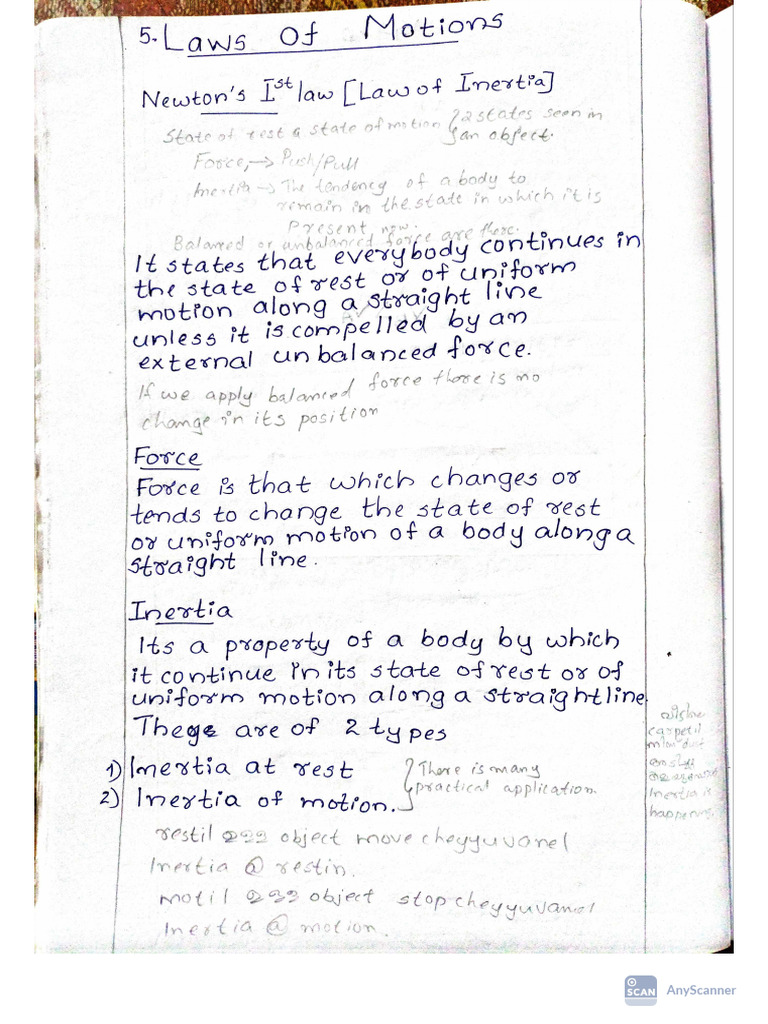 5. Laws of Motions
Newton's Ist law [Law of Inertia]
State of rest & state of motion } 2 states seen in
an object.
Force, → Push/Pull
Inertia → The tendency of a body to
remain in the state in which it is
Present now.
Balanced or unbalanced force are there.
It states that everybody continues in
the state of rest or of uniform
motion along a straight line
unless it is compelled by an
external unbalanced force.
If we apply balanced force there is no
change in its position
Force
Force is that which changes or
tends to change the state of rest
or uniform motion of a body along a
straight line.
Inertia
Its a property of a body by which
it continue in its state of rest or of
uniform motion along a straight line.
These are of 2 types
1) Inertia at rest
2) Inertia of motion.
There is many
practical application.
carpetil
dust
Inertia is
happening.
restil object move cheyyuvanel
Inertia @ restin.
motil object stop cheyyuvanel
Inertia @ motion.
SCAN AnyScanner